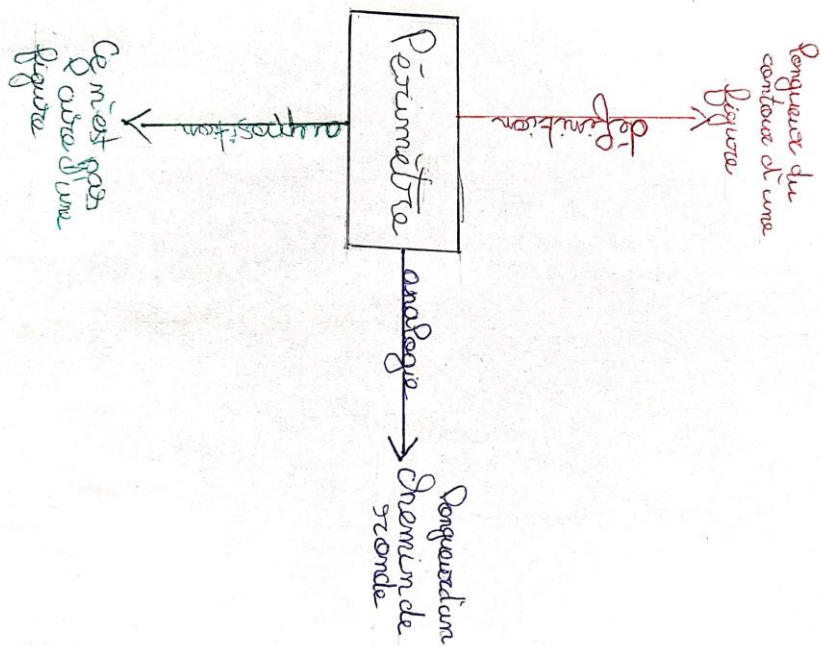 Périmètre
définition
longueur du
contour d'une
figure
analogie
longueur d'un
chemin de
ronde
opposition
Ce n'est pas
l'aire d'une
figure